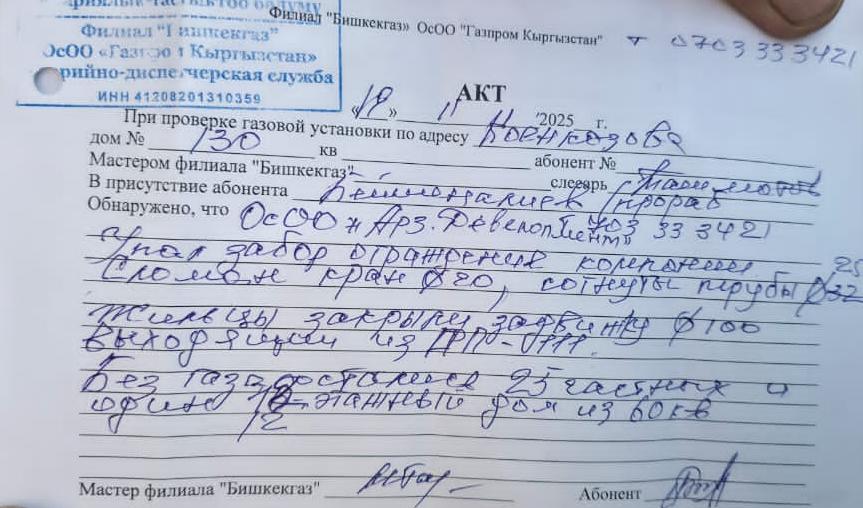 Филиал "Бишкекгаз" ОсОО "Газпром Кыргызстан" т 0703 33 3421
Филиал "Бишкекгаз"
ОсОО «Газпром Кыргызстан»
рийно-диспетчерская служба
ИНН 41208201310359
АКТ
«18» 11 2025 г.
При проверке газовой установки по адресу
дом № 130 кв абонент №
Мастером филиала "Бишкекгаз" слесарь
В присутствие абонента прораб
Обнаружено, что ОсОО "Арз. Девелопмент" 703 33 3421
Упал забор ограждения компании
Сломан кран ф20, согнуты трубы ф32 25
Жильцы закрыли задвижку ф100
выходящий из ГРП-
Без газа остались 25 частных и
один 12 этажный дом из 60 кв
Мастер филиала "Бишкекгаз" Абонент